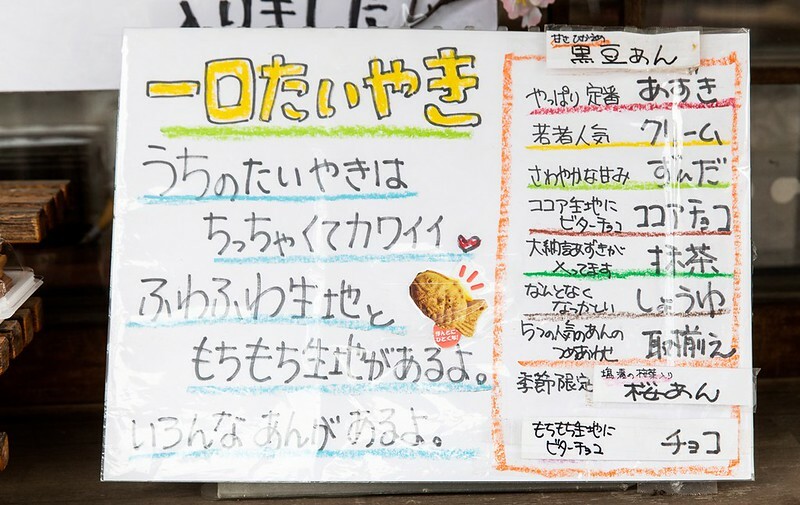 入りました
一口たいやき
うちのたいやきは
ちっちゃくてカワイイ
ふわふわ生地と
もちもち生地があるよ。
いろんなあんがあるよ。
ほんとに
ひとくち!
甘さひかえめ
黒豆あん
やっぱり定番 あずき
若者人気 クリーム
さわやかな甘み ずんだ
ココア生地に
ビターチョコ ココアチョコ
大納言あずきが
入ってます 抹茶
なんとなく
なつかしい しょうゆ
5つの人気のあんの
つめあわせ 取揃え
季節限定
塩漬の桜葉入り
桜あん
もちもち生地に
ビターチョコ チョコ